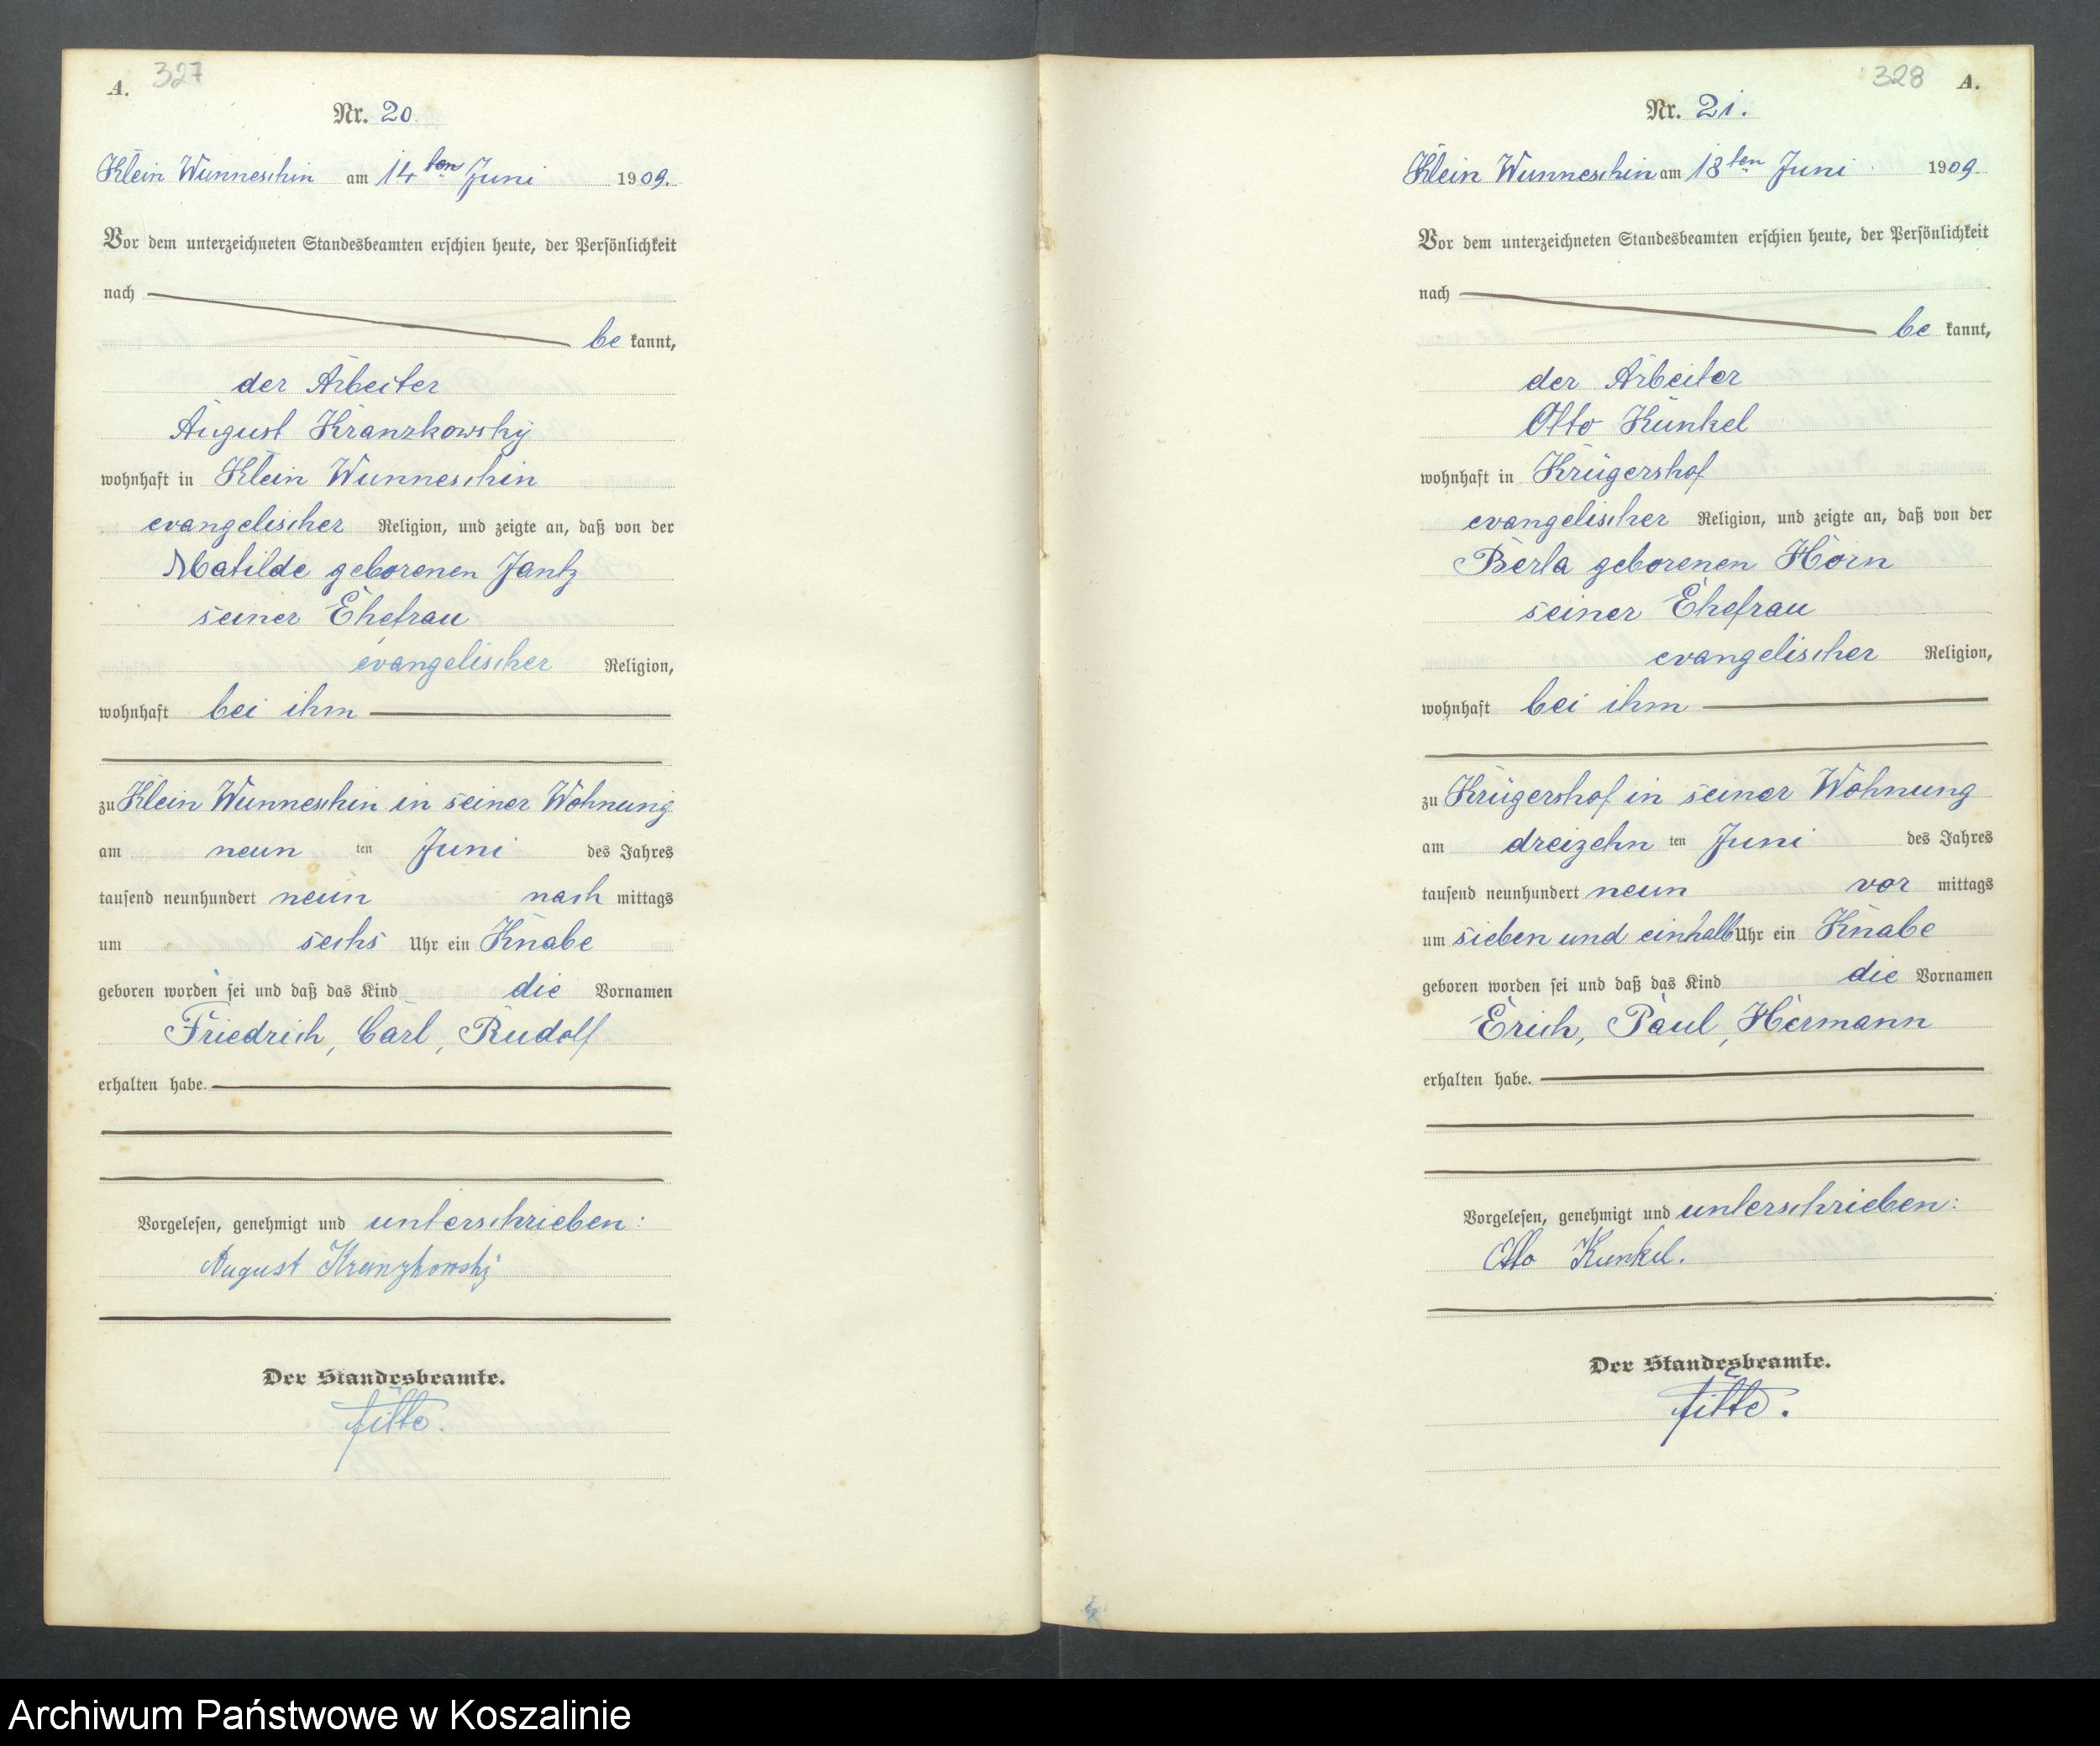 A. 327
Nr. 20.
Klein Wunneschin am 14ten Juni 1909.
Vor dem unterzeichneten Standesbeamten erschien heute, der Persönlichkeit
nach
be kannt,
der Arbeiter
August Kranzkowsky
wohnhaft in Klein Wunneschin
evangelischer Religion, und zeigte an, daß von der
Matilde geborenen Jantz
seiner Ehefrau
evangelischer Religion,
wohnhaft bei ihm
zu Klein Wunneschin in seiner Wohnung
am neun ten Juni des Jahres
tausend neunhundert neun nach mittags
um sechs Uhr ein Knabe
geboren worden sei und daß das Kind die Vornamen
Friedrich, Carl, Rudolf
erhalten habe.
Vorgelesen, genehmigt und unterschrieben:
August Kranzkowsky
Der Standesbeamte.
328 A.
Nr. 21.
Klein Wunneschin am 18ten Juni 1909
Vor dem unterzeichneten Standesbeamten erschien heute, der Persönlichkeit
nach
be kannt,
der Arbeiter
Otto Kunkel
wohnhaft in Krügershof
evangelischer Religion, und zeigte an, daß von der
Berta geborenen Horn
seiner Ehefrau
evangelischer Religion,
wohnhaft bei ihm
zu Krügershof in seiner Wohnung
am dreizehn ten Juni des Jahres
tausend neunhundert neun vor mittags
um sieben und einhalb Uhr ein Knabe
geboren worden sei und daß das Kind die Vornamen
Erich, Paul, Hermann
erhalten habe.
Vorgelesen, genehmigt und unterschrieben:
Otto Kunkel.
Der Standesbeamte.
Archiwum Państwowe w Koszalinie